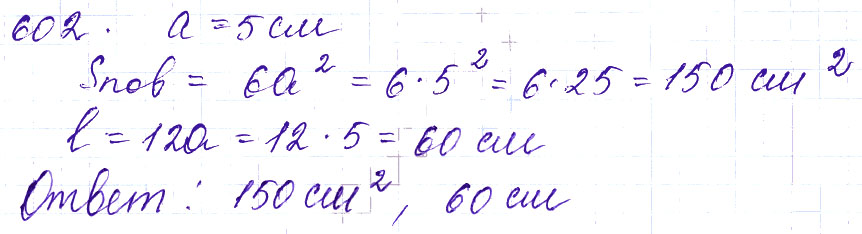 602. a = 5 см
Sпов = 6a² = 6·5² = 6·25 = 150 см²
l = 12a = 12·5 = 60 см
Ответ: 150 см², 60 см